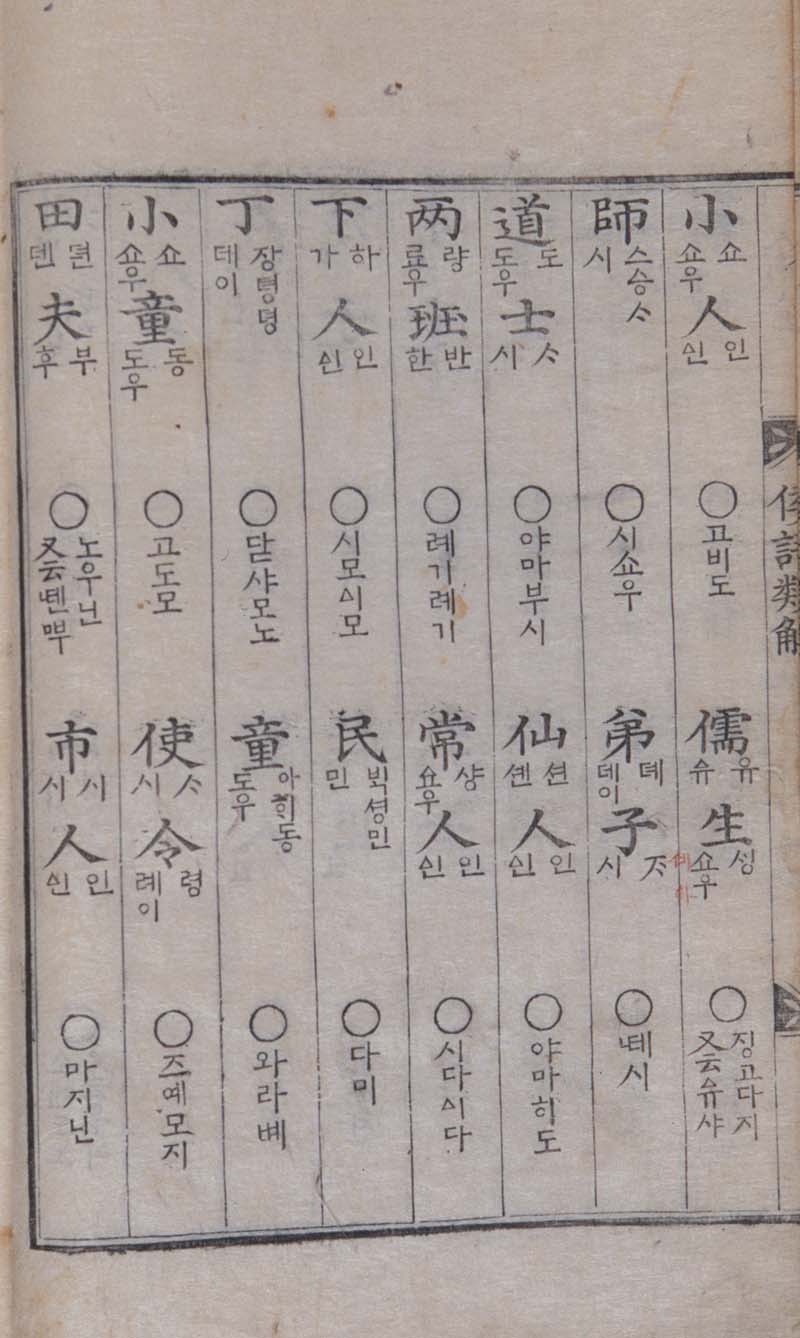 倭語類解
小 쇼 쇼우 人 인 ᅀᅵᆫ ○ 고비도 儒 유 ᅀᅲ 生 ᄉᆡᆼ 쇼우 ○ 징고다지 又云ᅀᅲ샤
師 스승ᄉᆞ 시 ○ 시쇼우 弟 뎨 데이 子 ᄌᆞ 시 ○ ᄔᅦ시
道 도 도우 士 ᄉᆞ 시 ○ 야마부시 仙 션 셴 人 인 ᅀᅵᆫ ○ 야마히도
两 량 료우 班 반 한 ○ 례기례기 常 샹 ᅀᅭ우 人 인 ᅀᅵᆫ ○ 시다ᅀᅵ다
下 하 가 人 인 ᅀᅵᆫ ○ 시모ᅀᅵ모 民 ᄇᆡᆨ셩민 민 ○ 다미
丁 장뎡뎡 데이 ○ 닫샤모노 童 아ᄒᆡ동 도우 ○ 와라베
小 쇼 쇼우 童 동 도우 ○ 고도모 使 ᄉᆞ 시 令 령 례이 ○ 즈예모지
田 뎐 덴 夫 부 후 ○ 노우닌 又云ᄔᅦᆫ뿌 市 시 시 人 인 ᅀᅵᆫ ○ 마지닌